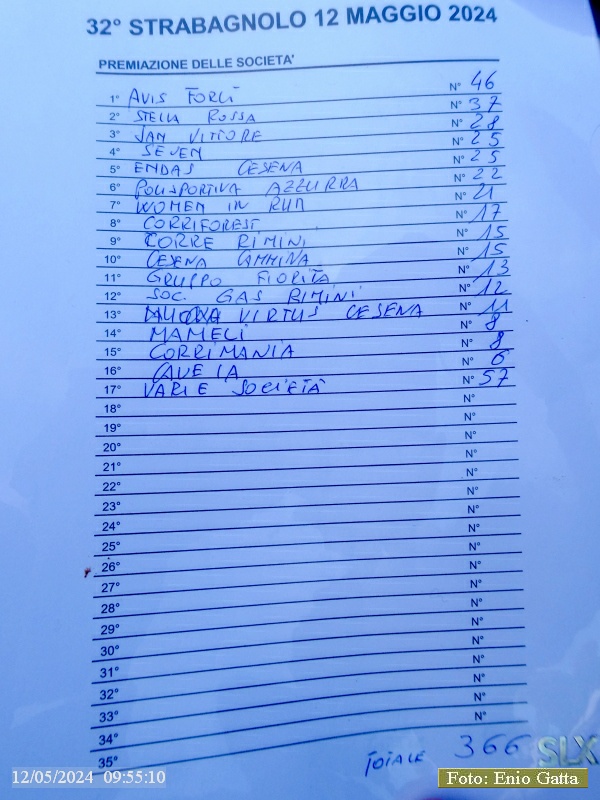 32° STRABAGNOLO 12 MAGGIO 2024
PREMIAZIONE DELLE SOCIETA'
1° AVIS FORLÌ N° 46
2° STELLA ROSSA N° 37
3° SAN VITTORE N° 28
4° SEVEN N° 25
5° ENDAS CESENA N° 25
6° POLISPORTIVA AZZURRA N° 22
7° WOMEN IN RUN N° 21
8° CORRIFOREST N° 17
9° CORRE RIMINI N° 15
10° CESENA CAMMINA N° 15
11° GRUPPO FIORITA N° 13
12° SOC. GAS RIMINI N° 12
13° NUOVA VIRTUS CESENA N° 11
14° MAMELI N° 8
15° CORRIMANIA N° 8
16° CAVEJA N° 6
17° VARIE SOCIETÀ N° 57
18° N°
19° N°
20° N°
21° N°
22° N°
23° N°
24° N°
25° N°
26° N°
27° N°
28° N°
29° N°
30° N°
31° N°
32° N°
33° N°
34° N°
35° TOTALE 366
SLX
12/05/2024 09:55:10
Foto: Enio Gatta